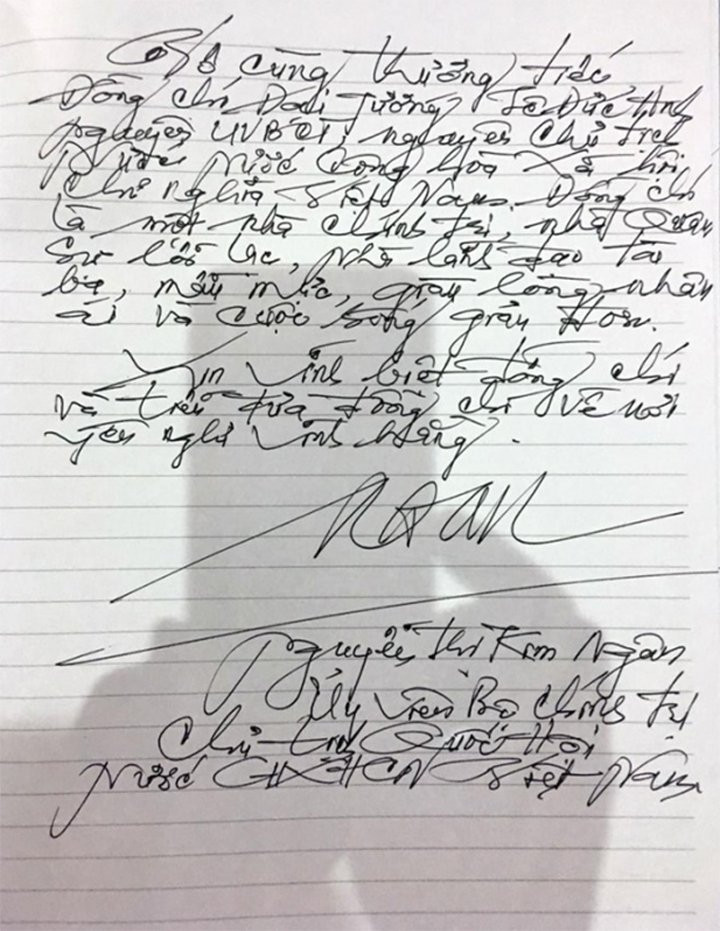 Vô cùng thương tiếc
Đồng chí Đại Tướng Lê Đức Anh
nguyên UVBCT, nguyên Chủ tịch
Nước Cộng hòa Xã hội
Chủ nghĩa Việt Nam. Đồng chí
là một nhà chính trị, nhà Quân
Sự lỗi lạc, nhà lãnh đạo tài
ba, mẫu mực, giàu lòng nhân
ái và cuộc sống giản đơn.
Xin vĩnh biệt đồng chí
và tiễn đưa đồng chí về nơi
yên nghỉ vĩnh hằng.
Nguyễn Thị Kim Ngân
Ủy viên Bộ Chính trị
Chủ tịch Quốc Hội
Nước CHXHCN Việt Nam